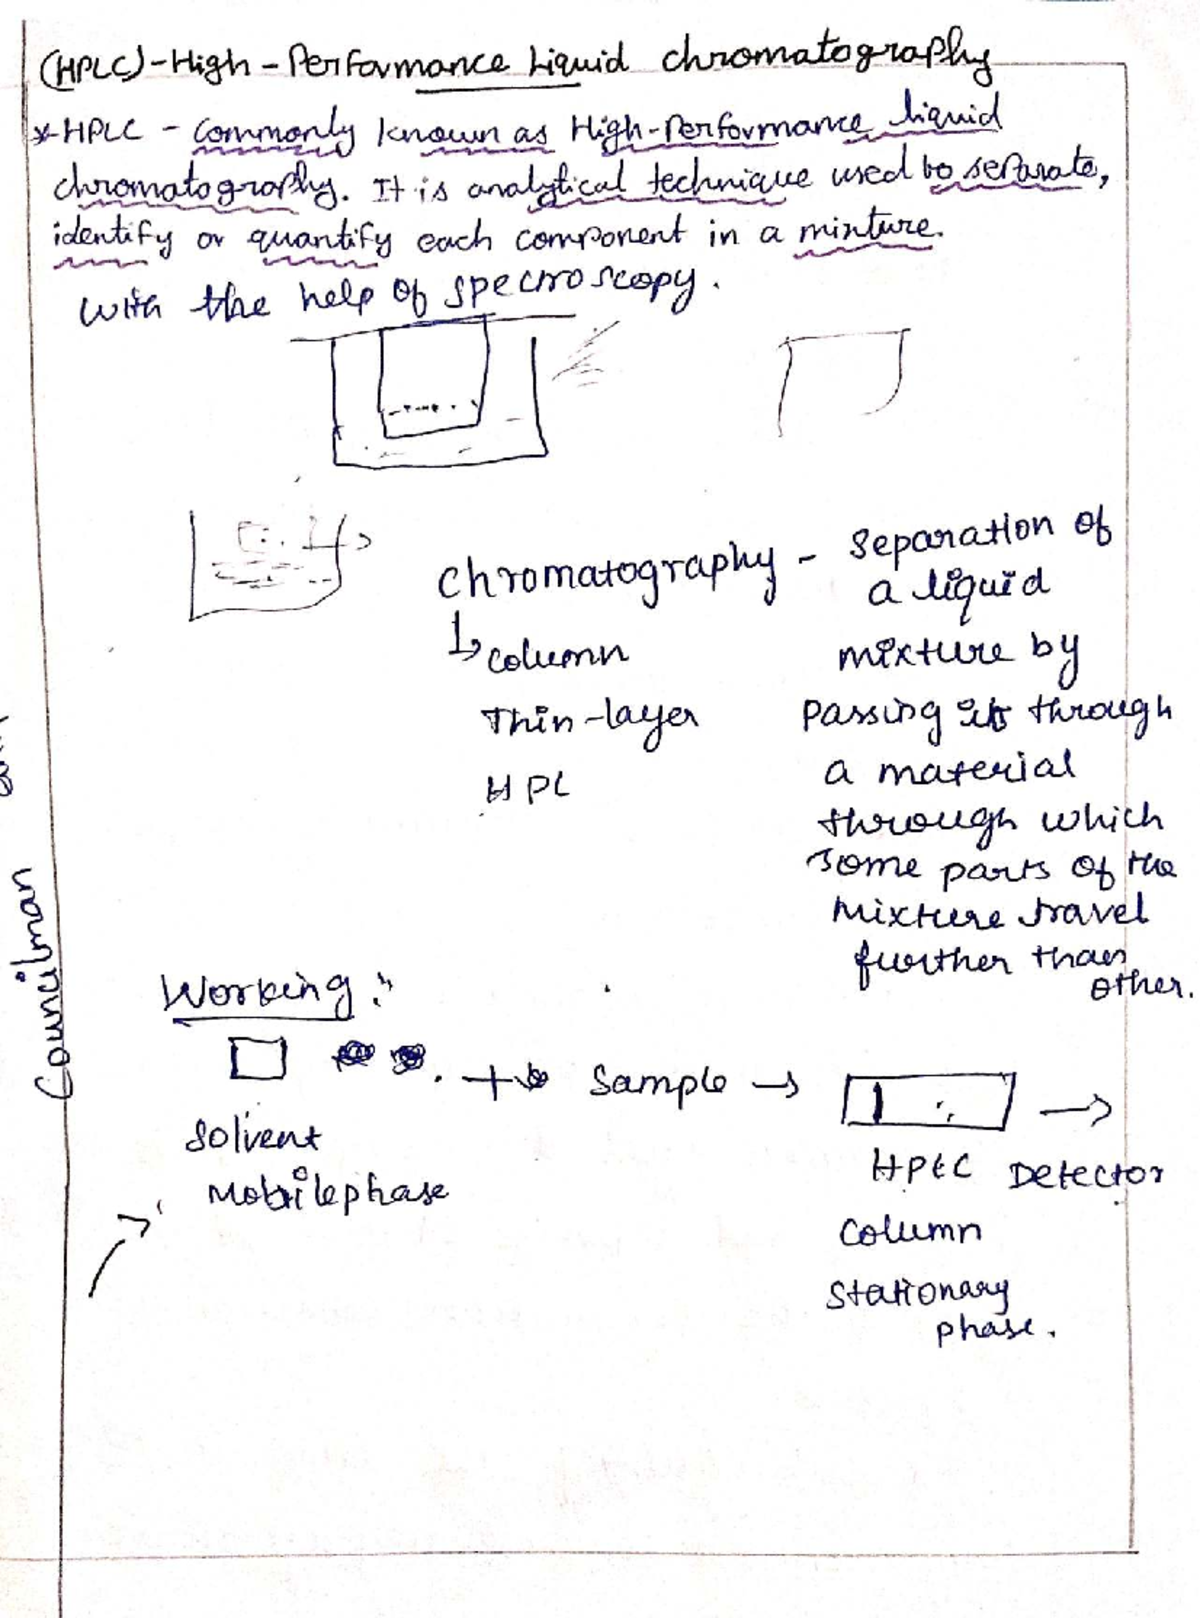 (HPLC)-High-Performance Liquid chromatography
*-HPLC - commonly known as High-Performance liquid
chromatography. It is analytical technique used to separate,
identify or quantify each component in a mixture.
with the help of spectroscopy.
chromatography - separation of
a liquid
mixture by
passing it through
a material
through which
some parts of the
mixture travel
further than
other.
↳ column
Thin-layer
HPL
Councilman
Working :-
+ Sample →
→
Solvent
Mobile phase
HPLC
Column
Stationary
phase.
Detector